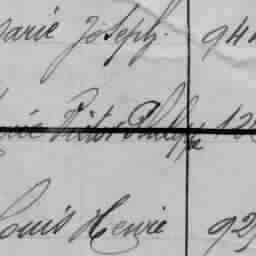 arie Joseph. 94
Victor Philippe 12
Louis Henrie 92